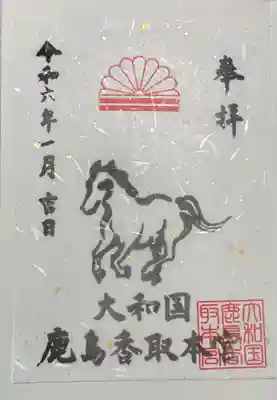 奉拝
令和六年一月吉日
大和国
鹿島香取本宮
大和国
鹿島香
取本宮